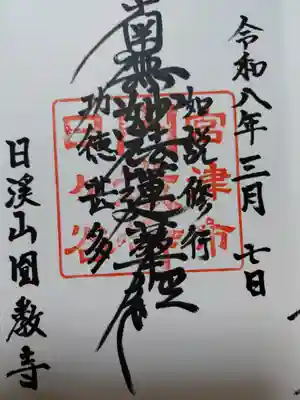 令和八年三月七日
如説修行
南無妙法蓮華経
功徳甚多
日渓山圓教寺
宮津市
日ヶ谷